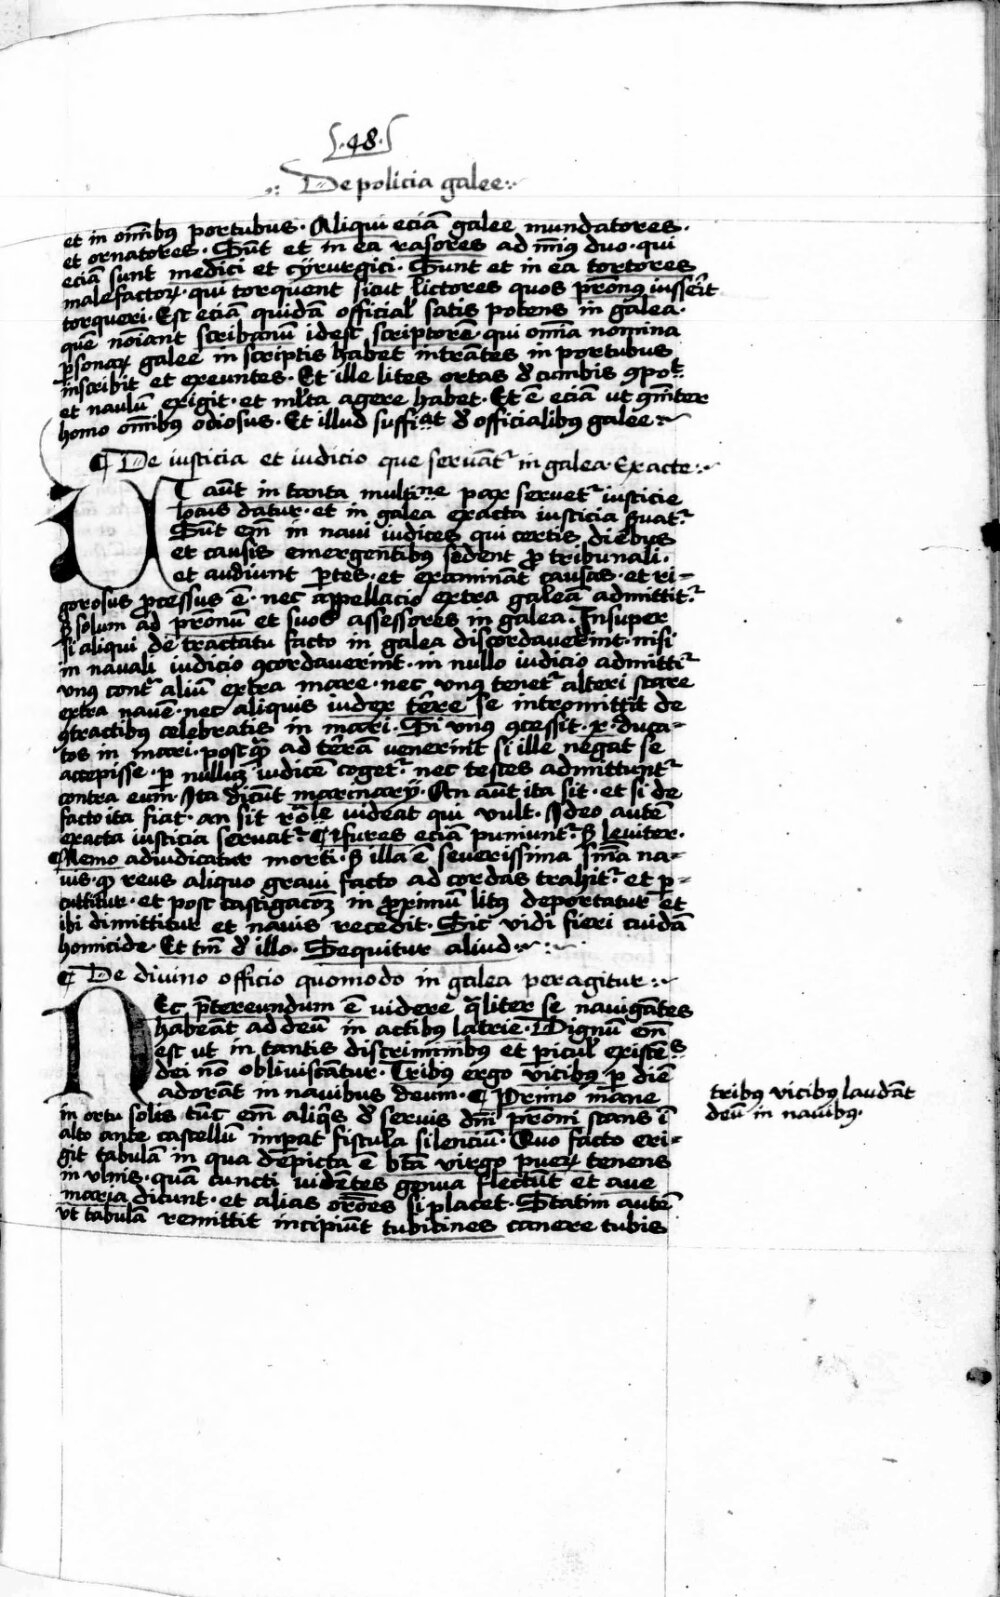 .48.
De policia galee
et in om̄ibꝫ portubus. Aliqui eciā galee mundatores.
et ornatores. Sūt et in ea rasores ad mī9 duo. qui
eciā sunt medici et cÿrurgici. Sunt et in ea tortores
malefactorꝝ. qui torquent sicut lictores quos pr̄onus iusser̄it
torqueri. Est eciā quidā official̛ satis potens in galea.
quē noīant scribanū idest scriptorē. qui om̄ia nomina
ꝑsonaꝝ galee in scriptis habet intrātes in portubus
inscribit et exeuntes. Et ille lites ortas đ cumbis ꝯpot
et naulū exigit. et ml̄ta agere habet. Et ē eciā ut qm̄ter
homo om̄ibꝫ odiosus. Et illud sufficiat đ officialibꝫ galee
¶ De iusticia et iudicio que seruāt᷑ in galea exacte
UT aūt in tanta multine pax seruet᷑ iusticie
locus datur. et in galea exacta iusticia s̄uat᷑.
Sūt em̄ in naui iudices qui certis diebus
et causis emergentibꝫ sedent ꝓ tribunali.
et audiunt ꝑtes. et examināt causas. et ri-
gorosus ꝓcessus ē. nec appellacio extra galeā admittit᷑.
sꝫ solum ad pr̄onū et suos assessores in galea. Insuper
si aliqui de tractatu facto in galea discordauerīt. nisi
in nauali iudicio ꝯcordauerīt. in nullo iudicio admittit᷑
vn9 cont᷑ aliū extra mare. nec vnꝰ tenet᷑ alteri stare
extra nauē. nec aliquis iudex tēre se intromittit de
ꝯtractibꝫ celebratis in mari. Si vnꝰ ꝯcessit .x. duca-
tos in mari. postq̄ꝫ ad tērā venerīt si ille negat se
accepisse. ꝑ nullūꝫ iudicē coget᷑. nec testes admittunt᷑
contra eum. Ita dicūt marinarÿ. An aut ita sit. et si de
facto ita fiat. an sit rōle videat qui vult. Ideo autē
exacta iusticia seruat᷑. ¶ Fures eciā puniunt᷑. sꝫ leuiter.
¶ Nemo adiudicatur morti. sꝫ illa ē seuerissima s̄nīa na-
uis. qꝫ reus aliquo graui facto ad cordas trahit᷑. et ꝑ-
cuttitur. et post castigacōꝫ in ꝓximū litꝰ deportatur et
ibi dimittitur et nauis recedit. Sic vidi fieri cuidā
homicide. Et tm̄ đ illo. Sequitur aliud
¶ De diuino officio quomodo in galea peragitur
NEc p̄tereundum ē videre q̄liter se nauigātes
habeāt ad deū in actibꝫ latrie. Dignū em̄
est ut in tantis discriminibꝫ et picul̛ existēs
dei nō obliuiscātur. Tribus ergo vicibus ꝑ diē
adorāt in nauibus deum. ¶ Primo mane
in ortu solis tūc em̄ aliq̄s đ seruis dn̄i pr̄oni stans ī
alto ante castellū impat fistula silenciū. Quo facto eri-
git tabulā in qua depicta ē btā virgo pueꝝ tenens
in vlnis. quā cuncti vidētes genua flectūt et aue
maria dicunt. et alias orōēs si placet. Statim autē
vt tabulā remittit incipiūt tubicines canere tubis
tribꝫ vicibꝫ laudāt
deū in nauibꝫ.